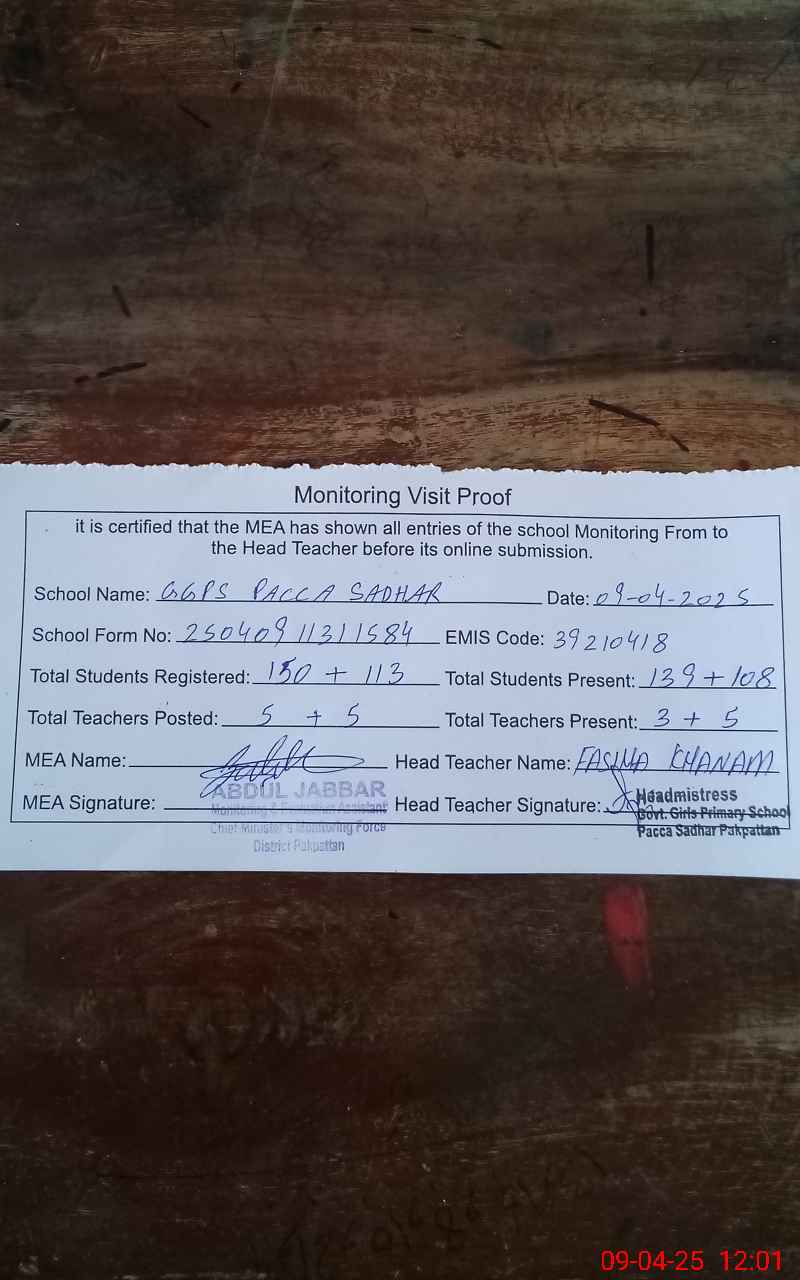 Monitoring Visit Proof
it is certified that the MEA has shown all entries of the school Monitoring From to
the Head Teacher before its online submission.
School Name: GGPS PACCA SADHAR Date: 09-04-2025
School Form No: 25040911311584 EMIS Code: 39210418
Total Students Registered: 150 + 113 Total Students Present: 139 + 108
Total Teachers Posted: 5 + 5 Total Teachers Present: 3 + 5
MEA Name: Head Teacher Name: FASIMA KHANAM
MEA Signature: Head Teacher Signature:
ABDUL JABBAR
Monitoring & Evaluation Assistant
Chief Minister's Monitoring Force
District Pakpattan
Headmistress
Govt. Girls Primary School
Pacca Sadhar Pakpattan
09-04-25 12:01